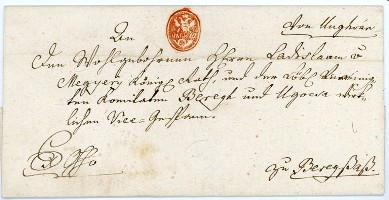 Von Unghvár
An
den Wohlgebohrnen Herrn Ladislaus v
Megyery Königl. Rath, und der Löbl.
ten Komitaten Beregh und Ugocsa
lichen Vice-Gespann.
Ex Offo
zu Beregszász.